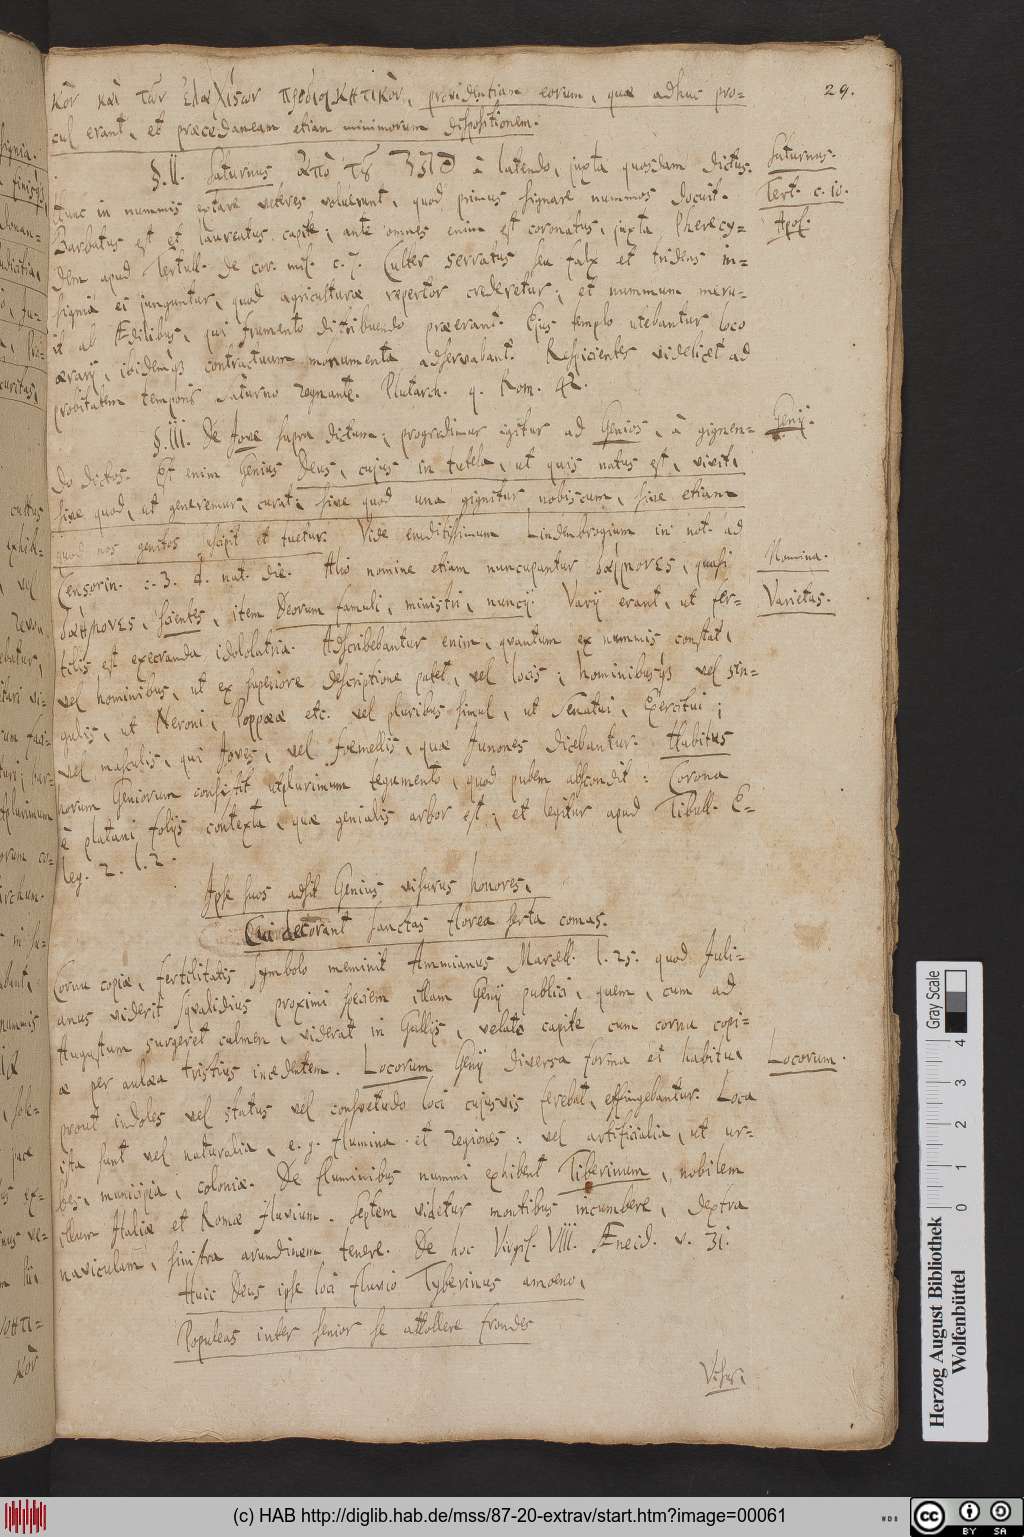 29.
κὸν καὶ τῶν ἐλαχίστων προδιοικητικὸν, providentiam eorum, quæ adhuc pro=
cul erant, et præcedaneam etiam minimorum dispositionem.
§. II. Saturnus ἀπὸ τοῦ à latendo, juxta quosdam dictus.
Saturnus.
Hunc in nummis extare veteres voluerunt, quod primus signare nummos docuit.
Tert. c. 10.
Apol.
Barbatus est et laureatus capite; ante omnes enim est coronatus, juxta Pherecy=
dem apud Tertull. de cor. mil. c. 7. Culter serratus seu falx et tridens in=
signia ei junguntur, quod agriculturæ repertor crederetur; et nummum meru=
it ab Ædilibus, qui frumento distribuendo præerant. Ejus templo utebantur loco
ærarij, ibidemq3 contractuum monumenta adservabant. Respicientes videlicet ad
probitatem temporis Saturno regnante. Plutarch. q. Rom. 42.
§. III. De Jove supra dictum; progredimur igitur ad Genios, à gignen=
Genij.
do dictos. Est enim Genius Deus, cujus in tutela, ut quis natus est, vivit,
sive quod, ut generemur, curat; sive quod una gignitur nobiscum, sive etiam
quod nos genitos suscipit et tuetur. Vide eruditissimum Lindenbrogium in not. ad
Censorin. c. 3. d. nat. die. Alio nomine etiam nuncupantur δαίμονες, quasi
Nomina.
δαήμονες, scientes, item Deorum famuli, ministri, nuncij. Varij erant, ut fer=
Varietas.
tilis est execranda idololatria. Adscribebantur enim, quantum ex nummis constat,
vel hominibus, ut ex superiore descriptione patet, vel locis; hominibusq3 vel sin=
gulis, ut Neroni, Poppææ etc. vel pluribus simul, ut Senatui, Exercitui;
vel masculis, qui Joves, vel fœmellis, quæ Junones dicebantur. Habitus
horum Geniorum consistit utplurimum tegumento, quod pubem abscondit: Corona
è platani folijs contexta, quæ genialis arbor est; et legitur apud Tibull. E=
leg. 2. l. 2.
Ipse suos adsit Genius visurus honores,
Cui decorant sanctas florea serta comas.
Cornu copiæ, fertilitatis symbolo meminit Ammianus Marcell. l. 25. quod Juli=
anus viderit squalidius proximi speciem illam Genij publici, quem, cum ad
Augustum surgeret culmen, viderat in Gallijs, velato capite cum cornu copi=
æ per aulæa tristius incedentem. Locorum Genij diversa forma et habitu,
Locorum.
prout indoles vel status vel consvetudo loci cujusvis ferebat, effingebantur. Loca
ista sunt vel naturalia, e. g. flumina et regiones: vel artificialia, ut ur=
bes, municipia, coloniæ. De fluminibus nummi exhibent Tiberinum, nobilem
illum Italiæ et Romæ fluvium. Septem videtur montibus incumbere, dextra
naviculam, sinistra arundinem tenere. De hoc Virgil. VIII. Æneid. v. 31.
Huic Deus ipse loci fluvio Tyberinus amoeno,
Populeas inter senior se attollere frondes
Visus,
Herzog August Bibliothek
Wolfenbüttel
Gray Scale
0 1 2 3 4
(c) HAB http://diglib.hab.de/mss/87-20-extrav/start.htm?image=00061
cc BY SA